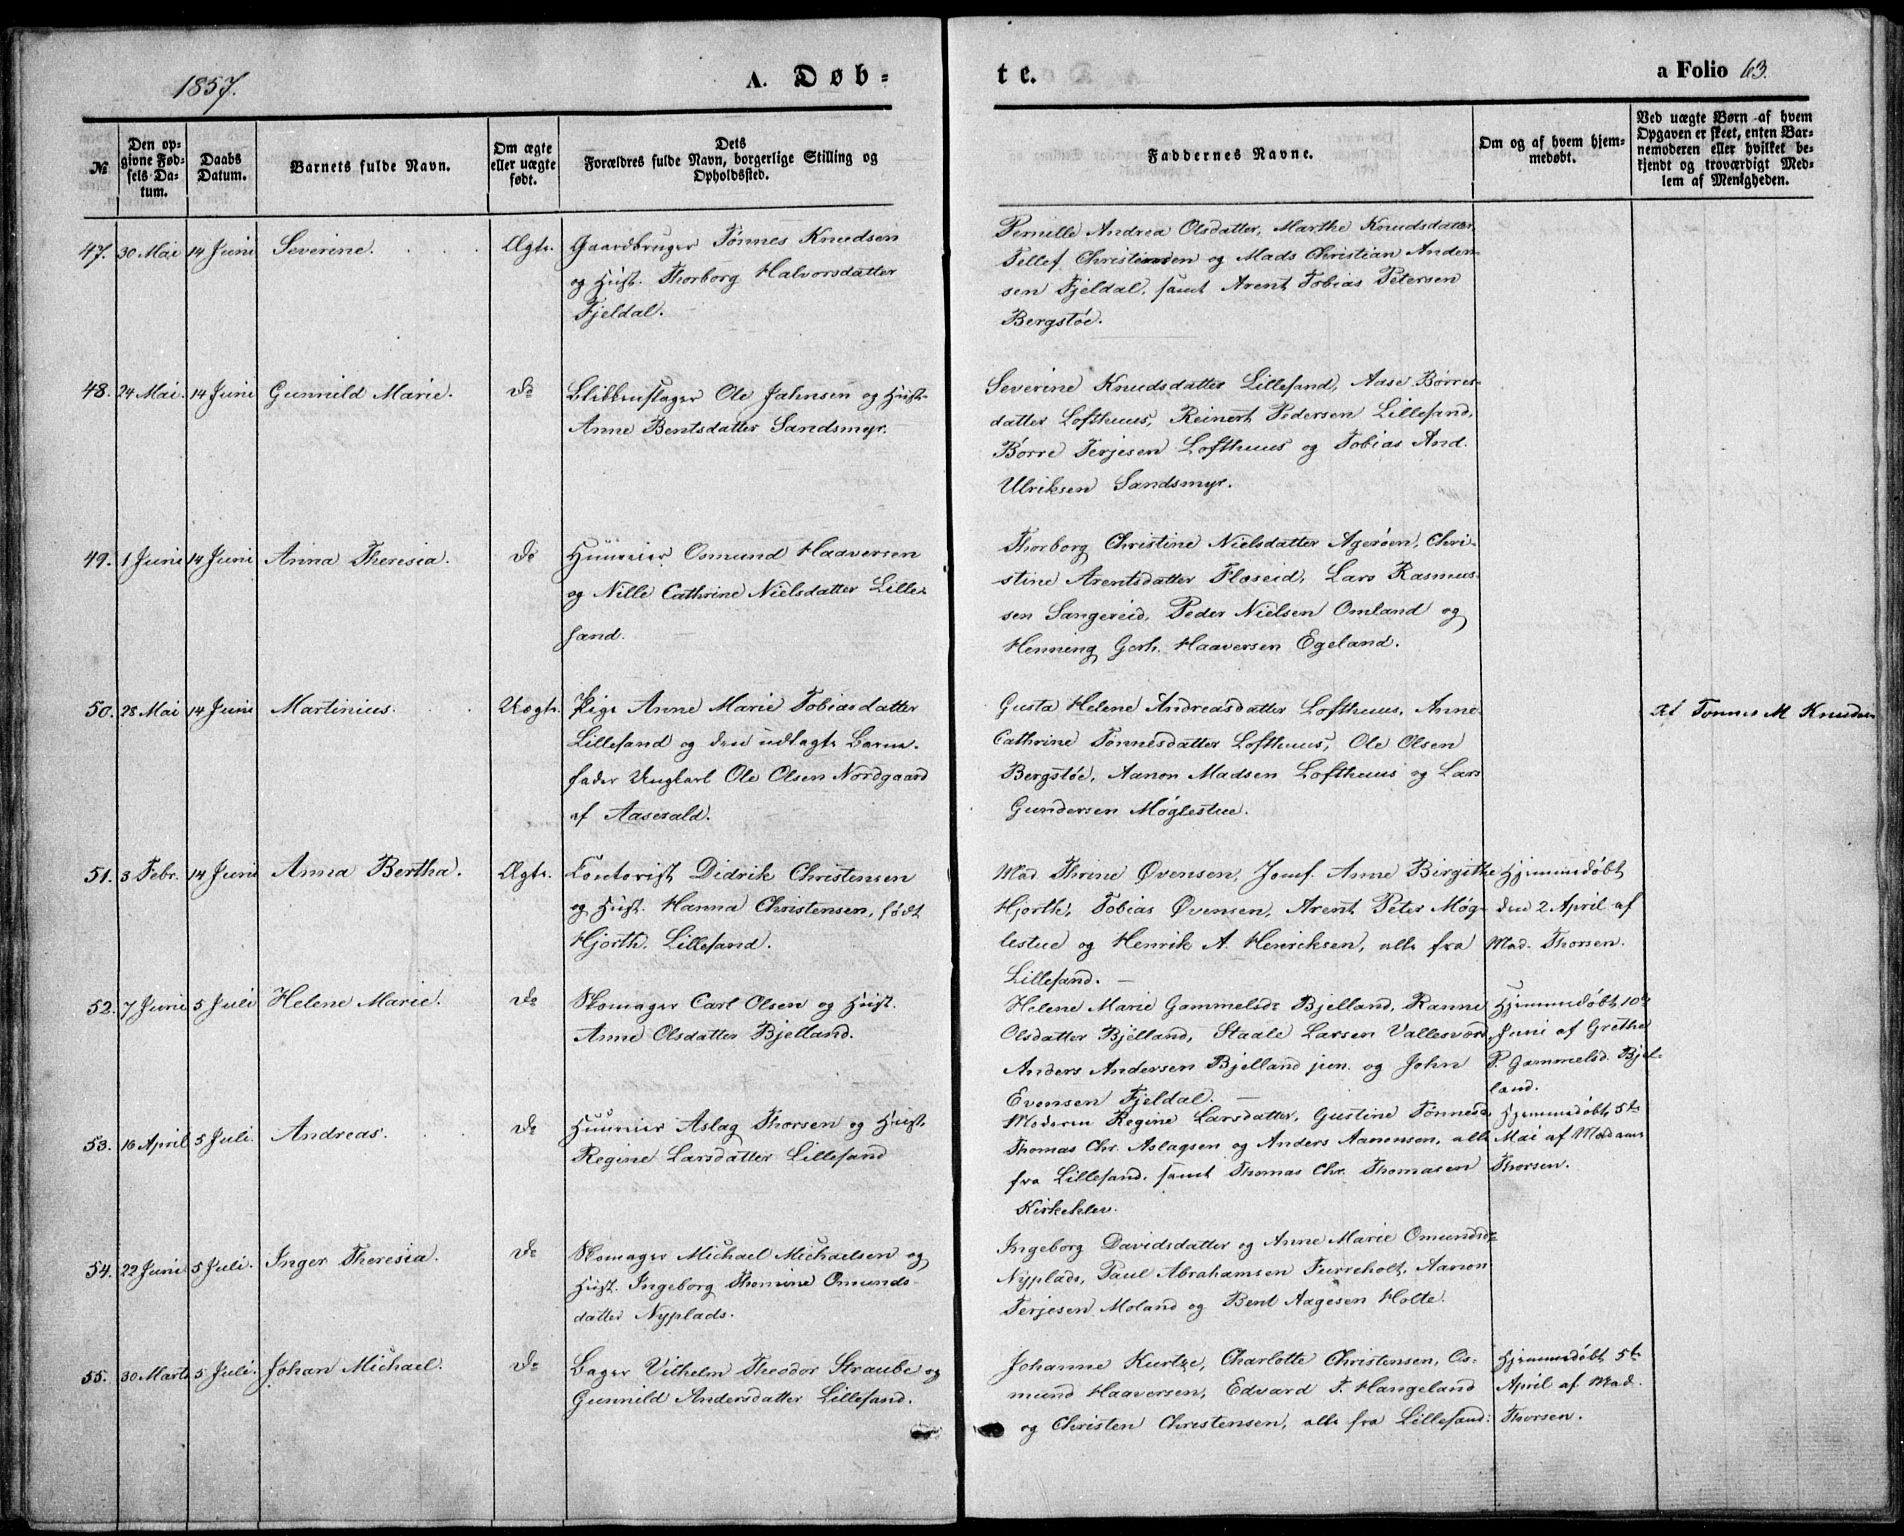 1857.
A. Døb-
te.
a Folio 63.
№
Den op-
givne Fød-
sels Da-
tum.
Daabs
Datum.
Barnets fulde Navn.
Om ægte
eller uægte
født.
Dets
Forældres fulde Navn, borgerlige Stilling og
Opholdssted.
Faddernes Navne.
Om og af hvem hjem-
medøbt.
Ved uægte Børn af hvem
Opgaven er skeet, enten Bar-
nemoderen eller hvilket be-
kjendt og troværdigt Med-
lem af Menigheden.
47. 30 Mai 14 Juni Severine. Ægte. Gaardbruger Tønnes Knudsen
og Hust. Thorborg Halvorsdatter
Fjeldal.
Pernille Andrea Olsdatter, Marthe Knudsdatter,
Tellef Christensen og Mads Christian Ander-
sen Fjeldal, samt Arent Tobias Petersen
Bergstøe.
48. 24 Mai. 14 Juni Gunnild Marie. do Blikkenslager Ole Jahnsen og Hust.
Anne Bentsdatter Sandsmyr.
Severine Knudsdatter Lillesand, Aase Børres-
datter Lofthuus, Reinert Pedersen Lillesand,
Børre Terjesen Lofthuus og Tobias And.
Ulriksen Sandsmyr.
49. 1 Juni 14 Juni Anna Theresia. do Huuseier Osmund Haaversen
og Nille Cathrine Nielsdatter Lille-
sand.
Thorborg Christine Nielsdatter Agerøen, Chri-
stine Arentsdatter Floseid, Lars Rasmus-
sen Sangereid, Peder Nielsen Omland og
Henning Gerh. Haaversen Egeland.
50. 28 Mai 14 Juni Martinius. Uægte. Pige Anne Marie Tobiasdatter
Lillesand og den udlagte Barne-
fader Ungkarl Ole Olsen Nordgaard
af Aaserald.
Gusta Helene Andreasdatter Lofthuus, Anne
Cathrine Tønnesdatter Lofthuus, Ole Olsen
Bergstøe, Aanon Madsen Lofthuus og Lars
Gundersen Møglestue.
Af Tønnes M Knudsen
51. 3 Febr. 14 Juni Anna Bertha. Ægte. Contorist Didrik Christensen
og Hust. Hanna Christensen, født
Hjorth. Lillesand.
Mad Thrine Øvensen, Jomf. Anne Birgithe
Hjorth, Tobias Øvensen, Arent Peter Møg-
lestue og Henrik A. Henriksen, alle fra
Lillesand.
Hjemmedøbt
den 2 April af
Mad. Thorsen.
52. 7 Juni 5 Juli Helene Marie. do Skomager Carl Olsen og Hust.
Anne Olsdatter Bjelland.
Helene Marie Gammelsdr Bjelland, Ranne
Olsdatter Bjelland, Staale Larsen Vallesværd,
Anders Andersen Bjelland jun. og John
Evensen Fjeldal.
Hjemmedøbt 10de
Juni af Grethe
P. Gammelsd. Bjel-
land.
53. 16 April 5 Juli. Andreas. do Huuseier Aslag Thorsen og Hust.
Regine Larsdatter Lillesand
Moderen Regine Larsdatter, Gustine Tønnesd.
Thomas Chr. Aslagsen og Anders Aanensen, alle
fra Lillesand, samt Thomas Chr. Thomasen
Kirkeklev.
Hjemmedøbt 5te
Mai af Madame
Thorsen.
54. 22 Juni 5 Juli. Inger Theresia. do Skomager Michael Michaelsen og
Hust. Ingeborg Thomine Omunds-
datter Nyplads.
Ingeborg Davidsdatter og Anne Marie Omundsdr
Nyplads, Paul Abrahamsen Furreholt, Aanon
Terjesen Moland og Bent Aagesen Holte.
55. 30 Marts 5 Juli. Johan Michael. do Bager Vilhelm Theodor Straube og
Gunnild Andersdatter Lillesand.
Johanne Kurtze, Charlotte Christensen, Os-
mund Haaversen, Edvard T. Hangeland
og Christen Christensen, alle fra Lillesand.
Hjemmedøbt 5te
April af Mad.
Thorsen.